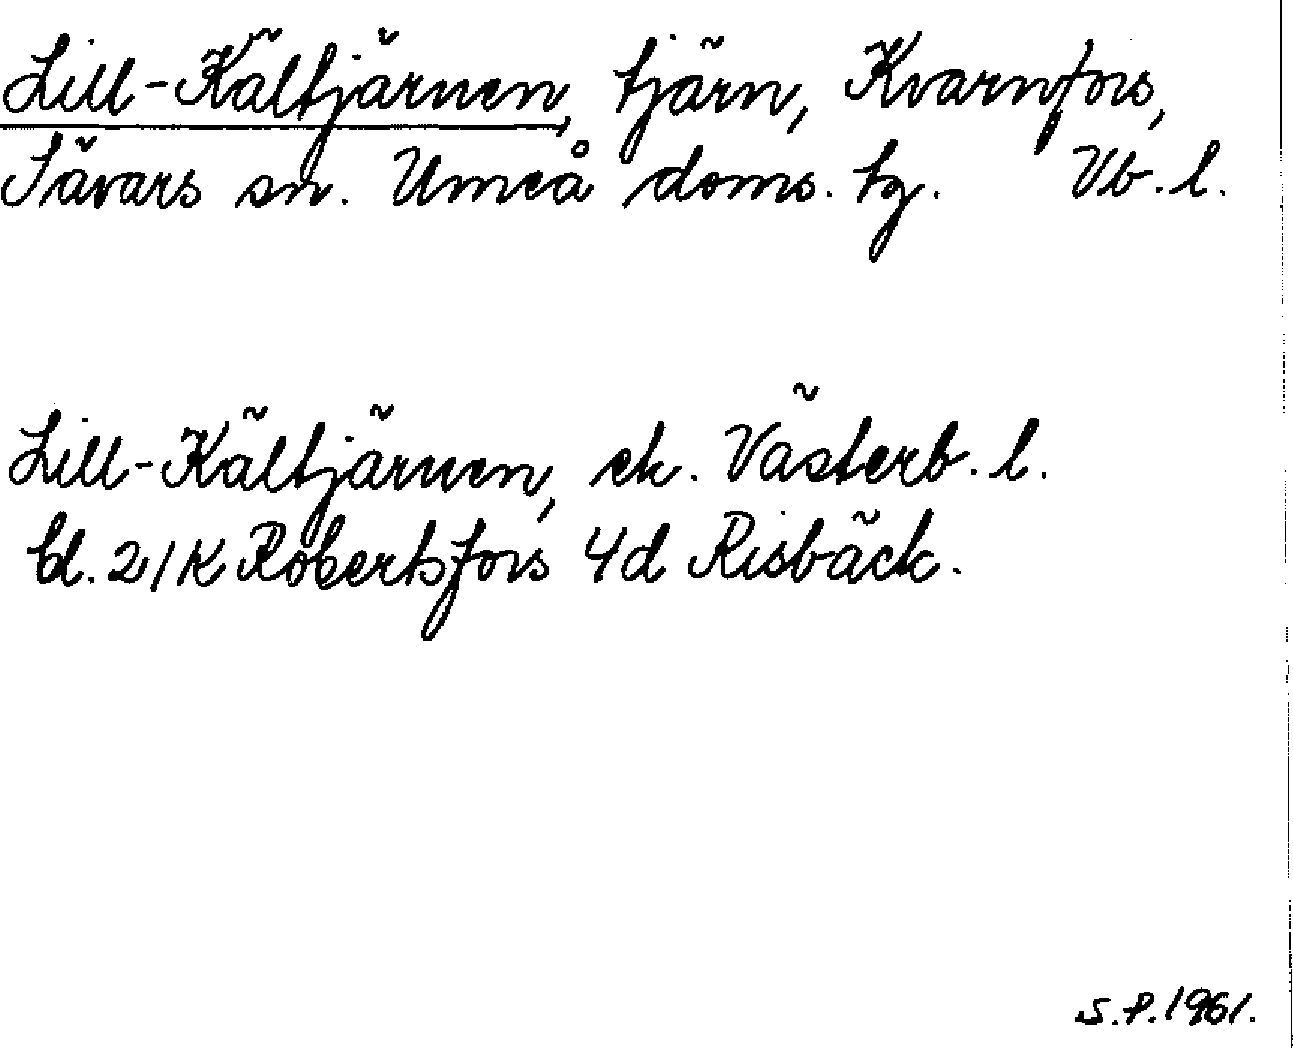 Lill-Kältjärnen, tjärn, Kvarnfors,
Sävars sn. Umeå doms. tg. Vb. l.
Lill-Kältjärnen, ek. Västerb. l.
bl. 21K Robertsfors 4d Risbäck.
S.P. 1961.